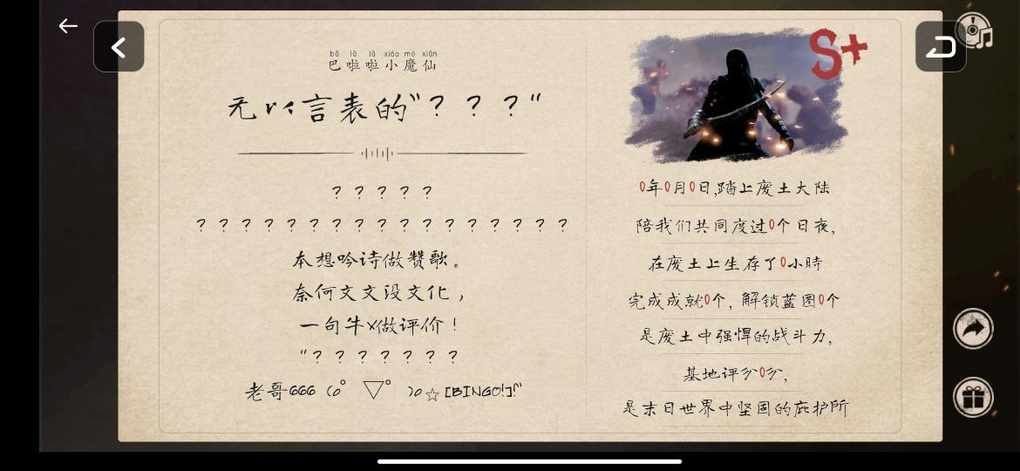 bā lā lā xiǎo mó xiān
巴啦啦小魔仙
无yi言表的"？？？"
？？？？？
？？？？？？？？？？？？？？？？？
本想吟诗做赞歌。
奈何文文没文化，
一句牛X做评价！
"？？？？？？？
老哥666（o゜▽゜）o☆[BINGO!]!"
S+
0年0月0日,踏上废土大陆
陪我们共同度过0个日夜,
在废土上生存了0小時
完成成就0个，解锁蓝图0个
是废土中强悍的战斗力,
基地评分0分,
是末日世界中坚固的庇护所